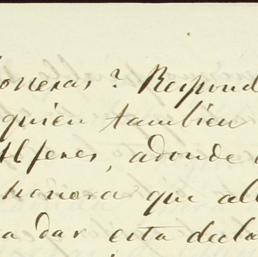 oneras? Respond
quien tambien
Alferes, adonde
honora que all
a dar esta decla